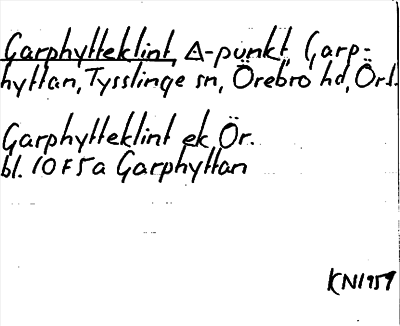 Garphytteklint, Δ-punkt, Garp-
hyttan, Tysslinge sn, Örebro hd, Ör.l.
Garphytteklint ek Ör.
bl. 10F5a Garphyttan
KN1959